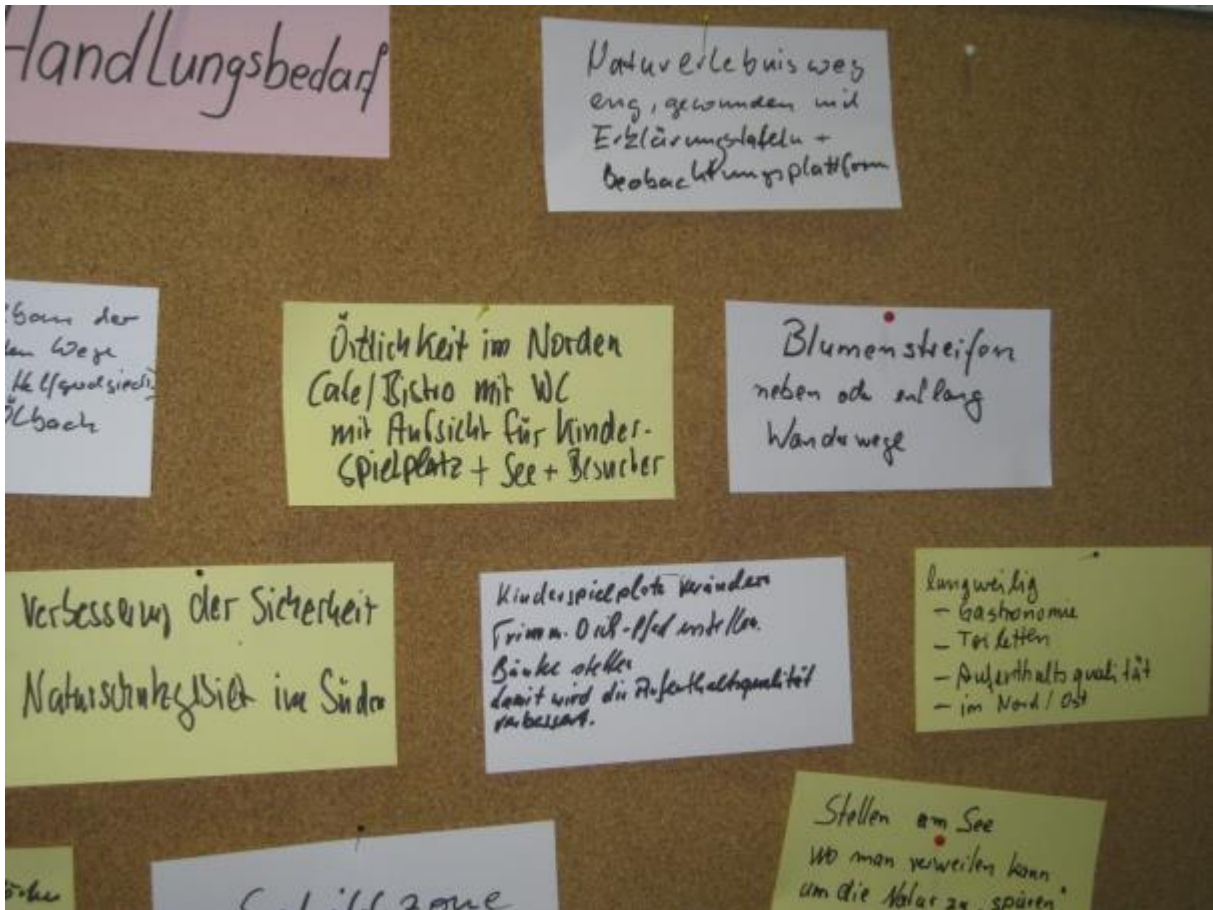 Handlungsbedarf
Naturerlebnisweg
eng, gewunden mit
Erklärungstafeln +
Beobachtungsplattform
der
Wege
Ölbach
Örtlichkeit im Norden
Cafe/Bistro mit WC
mit Aufsicht für Kinder-
spielplatz + See + Besucher
Blumenstreifen
neben od. entlang
Wanderwege
Verbesserung der Sicherheit
Naturschutzgebiet im Süden
Kinderspielplatz verändern
Trimm-Dich-Pfad erstellen.
Bänke stellen
damit wird die Aufenthaltsqualität
verbessert.
langweilig
- Gastronomie
- Toiletten
- Aufenthaltsqualität
- im Nord/Ost
Schilfzone
Stellen am See
wo man verweilen kann
um die Natur zu „spüren"